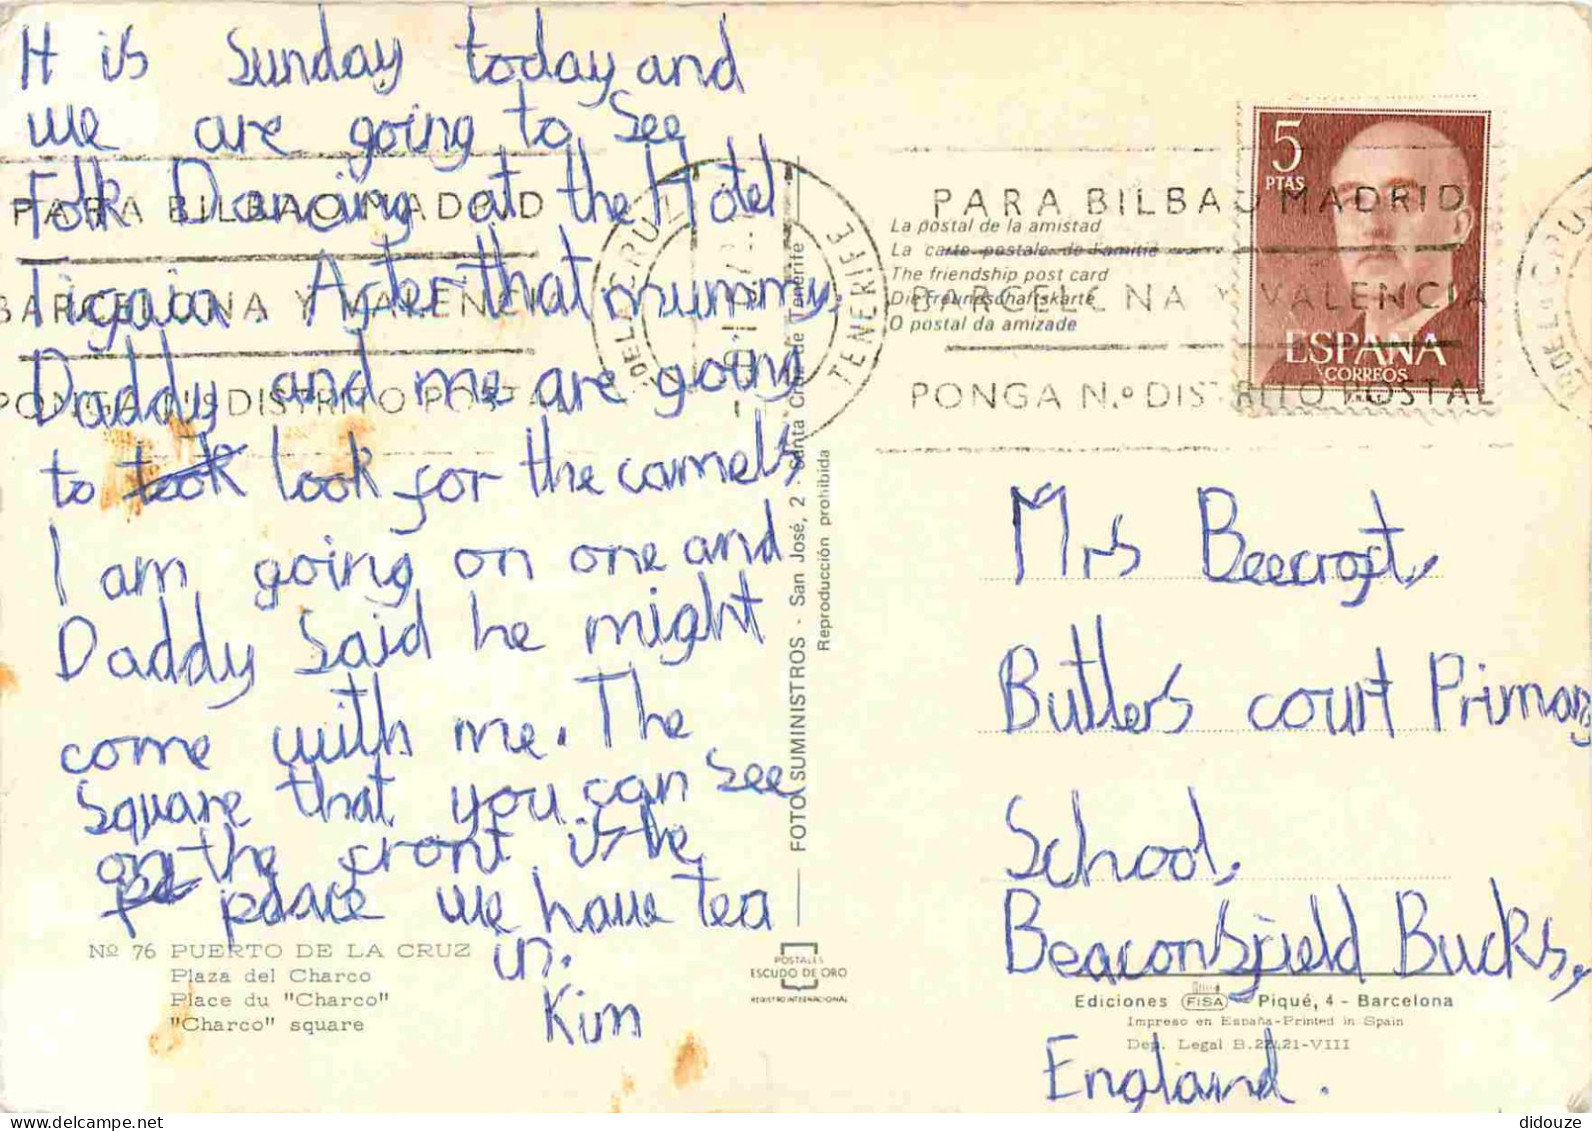 It is Sunday today and
we are going to See
Folk Dancing at the Hotel
Tigaia. After that mummy,
Daddy and me are going
to took look for the camels,
I am going on one and
Daddy Said he might
come with me. The
Square that you can see
on the front is the
pl place we have tea
in.
Kim
Nº 76 PUERTO DE LA CRUZ
Plaza del Charco
Place du "Charco"
"Charco" square
PARA BILBAO MADRID
BARCELONA Y VALENCIA
PONGA N.º DISTRITO POSTAL
DE LA CRUZ
TENERIFE
FOTO SUMINISTROS - San José, 2 - Santa Cruz de Tenerife
Reproducción prohibida
POSTALES
ESCUDO DE ORO
REGISTRO INTERNACIONAL
La postal de la amistad
La carte postale de l'amitié
The friendship post card
Die Freundschaftskarte
O postal da amizade
PARA BILBAO MADRID
BARCELONA Y VALENCIA
PONGA N.º DISTRITO POSTAL
5
PTAS
ESPAÑA
CORREOS
Mrs Beecroft,
Butlers court Primary
School,
Beaconsfield Bucks,
England.
Ediciones FISA - Piqué, 4 - Barcelona
Impreso en España-Printed in Spain
Dep. Legal B.22421-VIII
delcampe.net
didouze